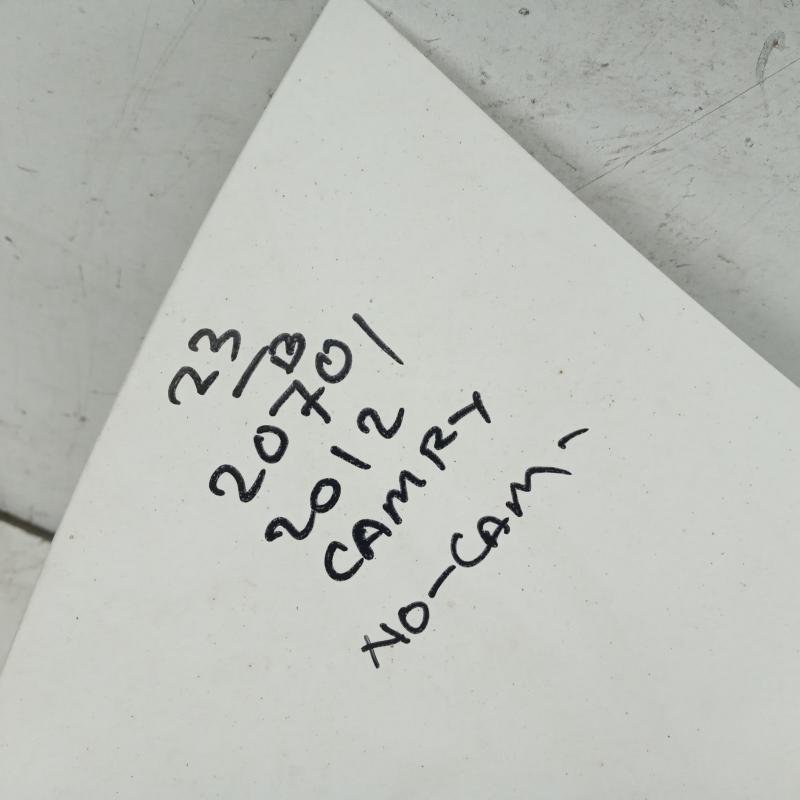 23/B
20701
2012
CAMRY
NO-CAM,